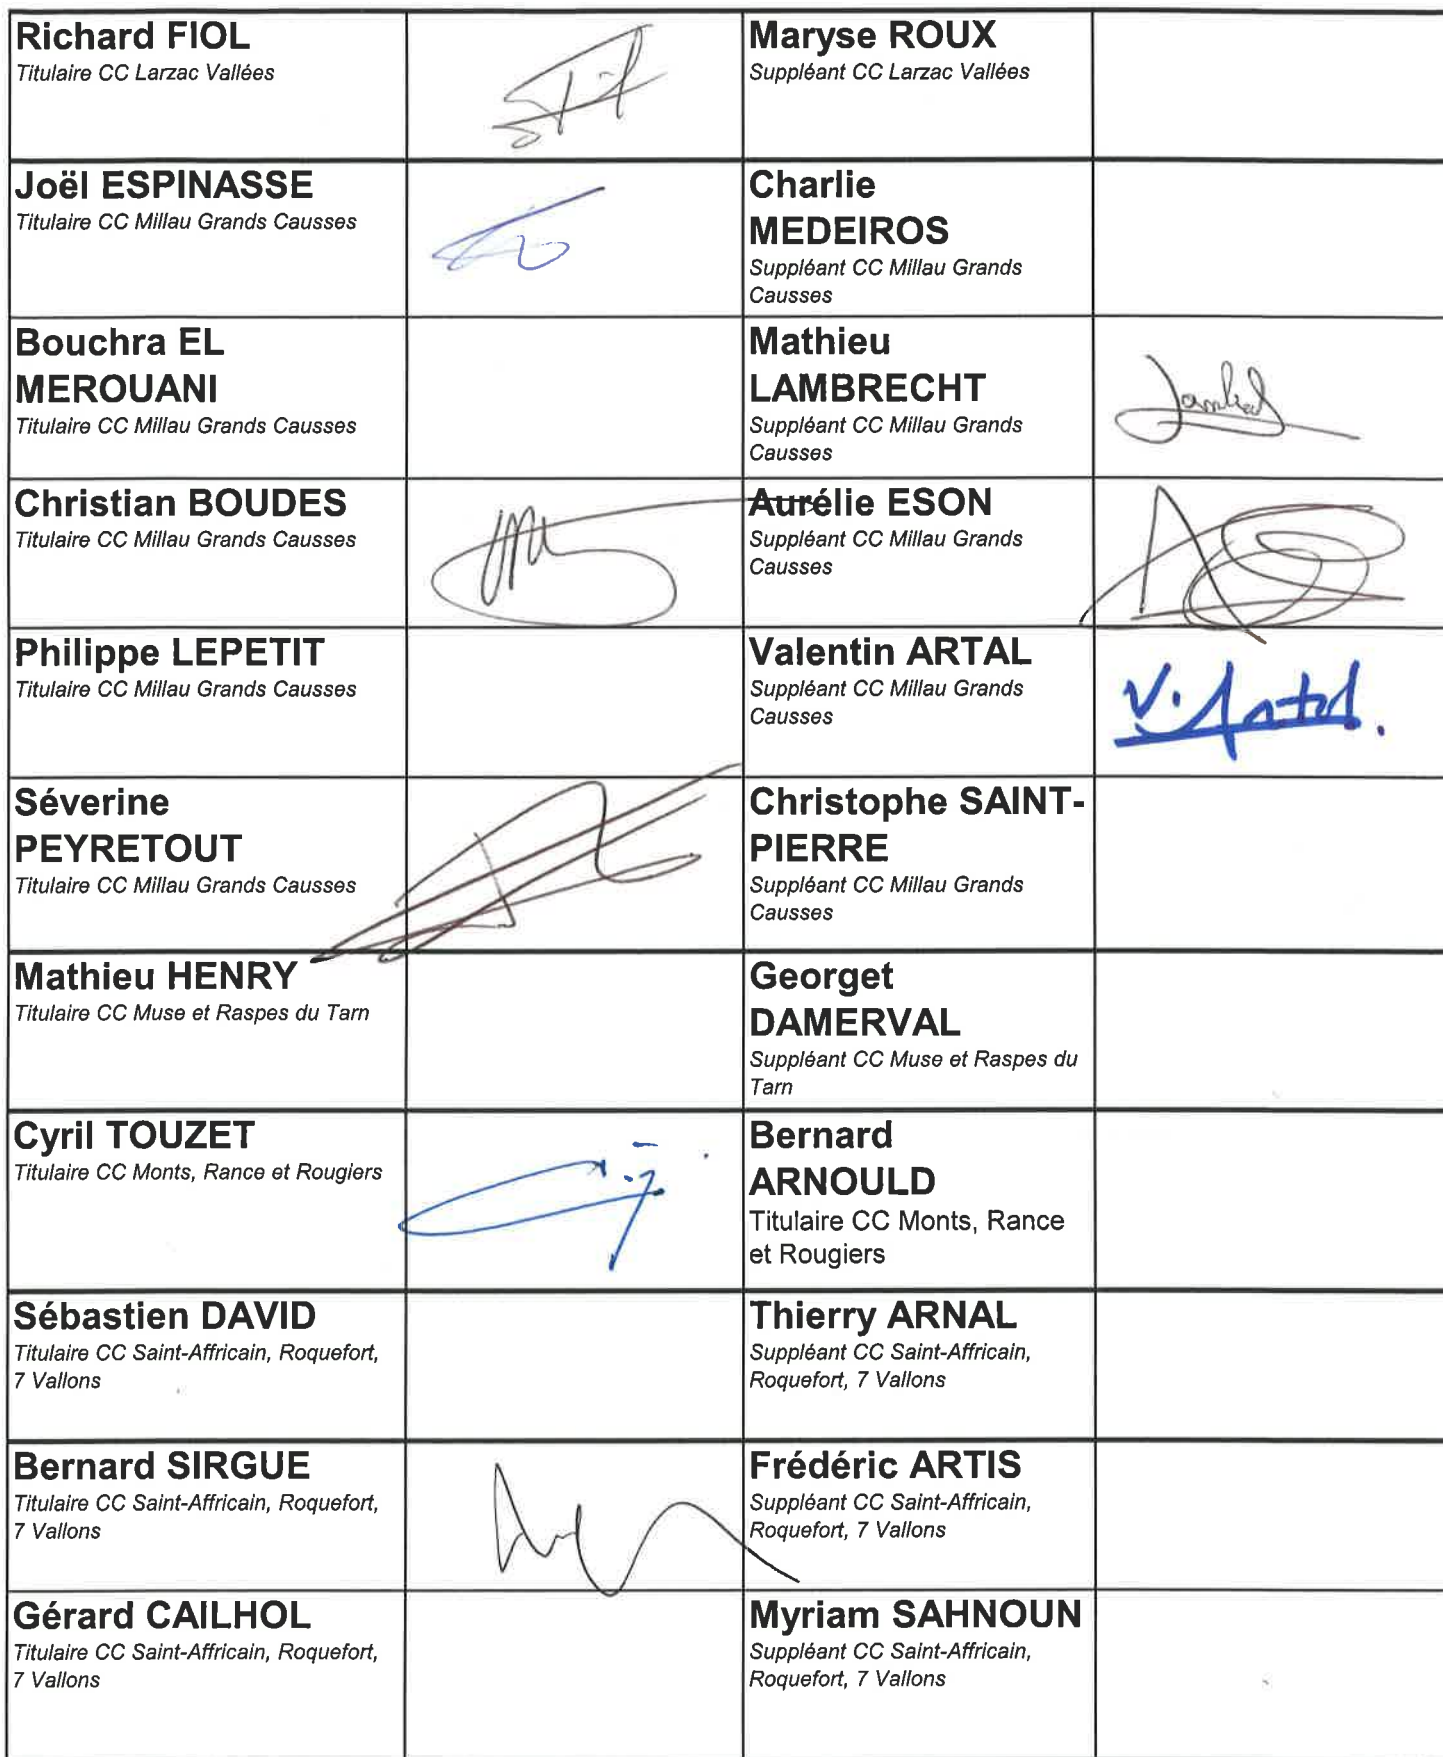 Richard FIOL
Titulaire CC Larzac Vallées
Maryse ROUX
Suppléant CC Larzac Vallées
Joël ESPINASSE
Titulaire CC Millau Grands Causses
Charlie
MEDEIROS
Suppléant CC Millau Grands
Causses
Bouchra EL
MEROUANI
Titulaire CC Millau Grands Causses
Mathieu
LAMBRECHT
Suppléant CC Millau Grands
Causses
Christian BOUDES
Titulaire CC Millau Grands Causses
Aurélie ESON
Suppléant CC Millau Grands
Causses
Philippe LEPETIT
Titulaire CC Millau Grands Causses
Valentin ARTAL
Suppléant CC Millau Grands
Causses
V. Artal.
Séverine
PEYRETOUT
Titulaire CC Millau Grands Causses
Christophe SAINT-
PIERRE
Suppléant CC Millau Grands
Causses
Mathieu HENRY
Titulaire CC Muse et Raspes du Tarn
Georget
DAMERVAL
Suppléant CC Muse et Raspes du
Tarn
Cyril TOUZET
Titulaire CC Monts, Rance et Rougiers
Bernard
ARNOULD
Titulaire CC Monts, Rance
et Rougiers
Sébastien DAVID
Titulaire CC Saint-Affricain, Roquefort,
7 Vallons
Thierry ARNAL
Suppléant CC Saint-Affricain,
Roquefort, 7 Vallons
Bernard SIRGUE
Titulaire CC Saint-Affricain, Roquefort,
7 Vallons
Frédéric ARTIS
Suppléant CC Saint-Affricain,
Roquefort, 7 Vallons
Gérard CAILHOL
Titulaire CC Saint-Affricain, Roquefort,
7 Vallons
Myriam SAHNOUN
Suppléant CC Saint-Affricain,
Roquefort, 7 Vallons